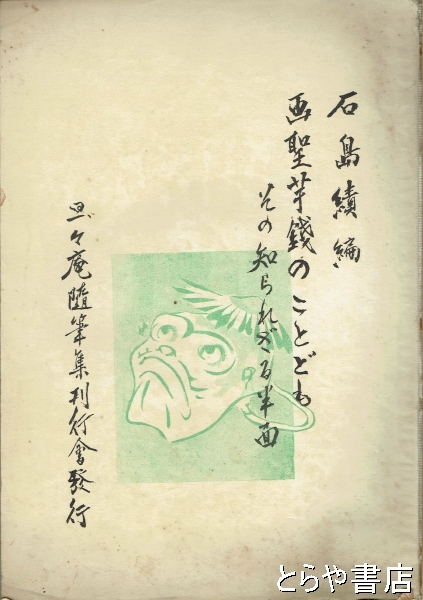 石島績編
画聖芋銭のことども
その知られざる半面
思々庵随筆集刊行會發行
とらや書店